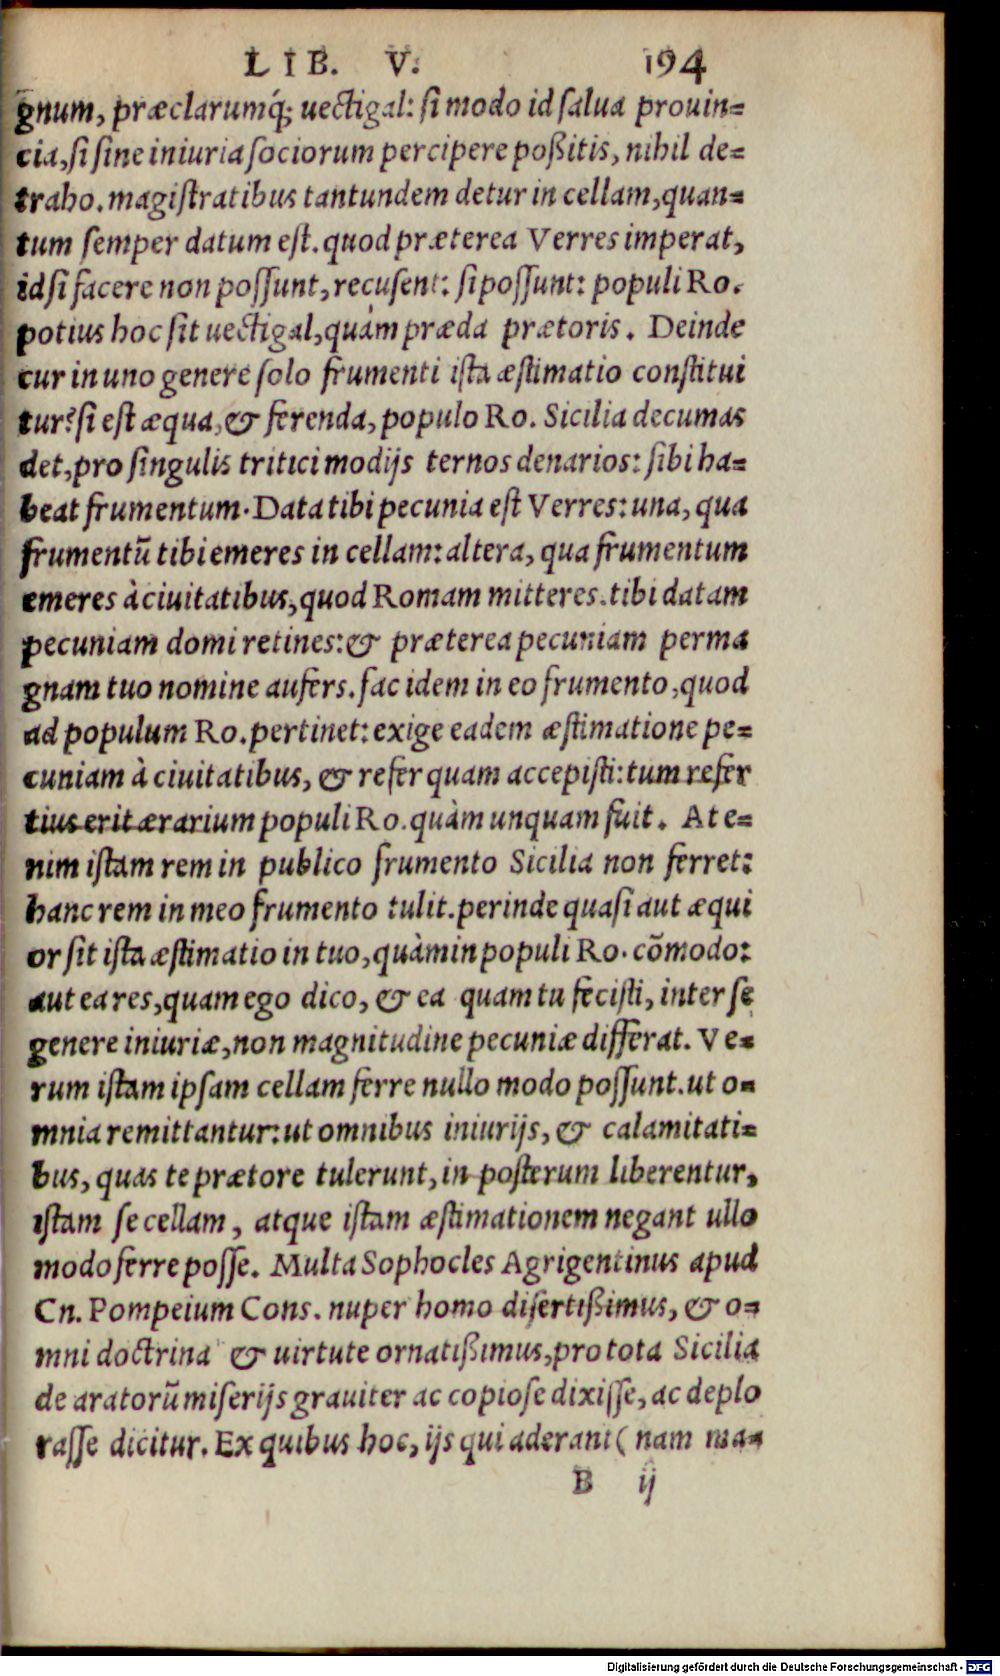 LIB. V. 194
gnum, præclarumq́; uectigal: si modo id salua prouin=
cia, si sine iniuria sociorum percipere poßitis, nihil de=
traho. magistratibus tantundem detur in cellam, quan=
tum semper datum est. quod præterea Verres imperat,
id si facere non possunt, recusent: si possunt: populi Ro.
potius hoc sit uectigal, quàm præda prætoris. Deinde
cur in uno genere solo frumenti ista æstimatio constitui
tur? si est æqua, & ferenda, populo Ro. Sicilia decumas
det, pro singulis tritici modijs ternos denarios: sibi ha=
beat frumentum. Data tibi pecunia est Verres: una, qua
frumentũ tibi emeres in cellam: altera, qua frumentum
emeres à ciuitatibus, quod Romam mitteres. tibi datam
pecuniam domi retines: & præterea pecuniam perma
gnam tuo nomine aufers. fac idem in eo frumento, quod
ad populum Ro. pertinet: exige eadem æstimatione pe=
cuniam à ciuitatibus, & refer quam accepisti: tum refer
tius erit ærarium populi Ro. quàm unquam fuit. At e=
nim istam rem in publico frumento Sicilia non ferret:
hanc rem in meo frumento tulit. perinde quasi aut æqui
or sit ista æstimatio in tuo, quàm in populi Ro. cõmodo:
aut ea res, quam ego dico, & ea quam tu fecisti, inter se
genere iniuriæ, non magnitudine pecuniæ differat. Ve=
rum istam ipsam cellam ferre nullo modo possunt. ut o=
mnia remittantur: ut omnibus iniurijs, & calamitati=
bus, quas te prætore tulerunt, in posterum liberentur,
istam se cellam, atque istam æstimationem negant ullo
modo ferre posse. Multa Sophocles Agrigentinus apud
Cn. Pompeium Cons. nuper homo disertißimus, & o=
mni doctrina & uirtute ornatißimus, pro tota Sicilia
de aratorũ miserijs grauiter ac copiose dixisse, ac deplo
rasse dicitur. Ex quibus hoc, ijs qui aderant (nam ma=
B ij
Digitalisierung gefördert durch die Deutsche Forschungsgemeinschaft - DFG